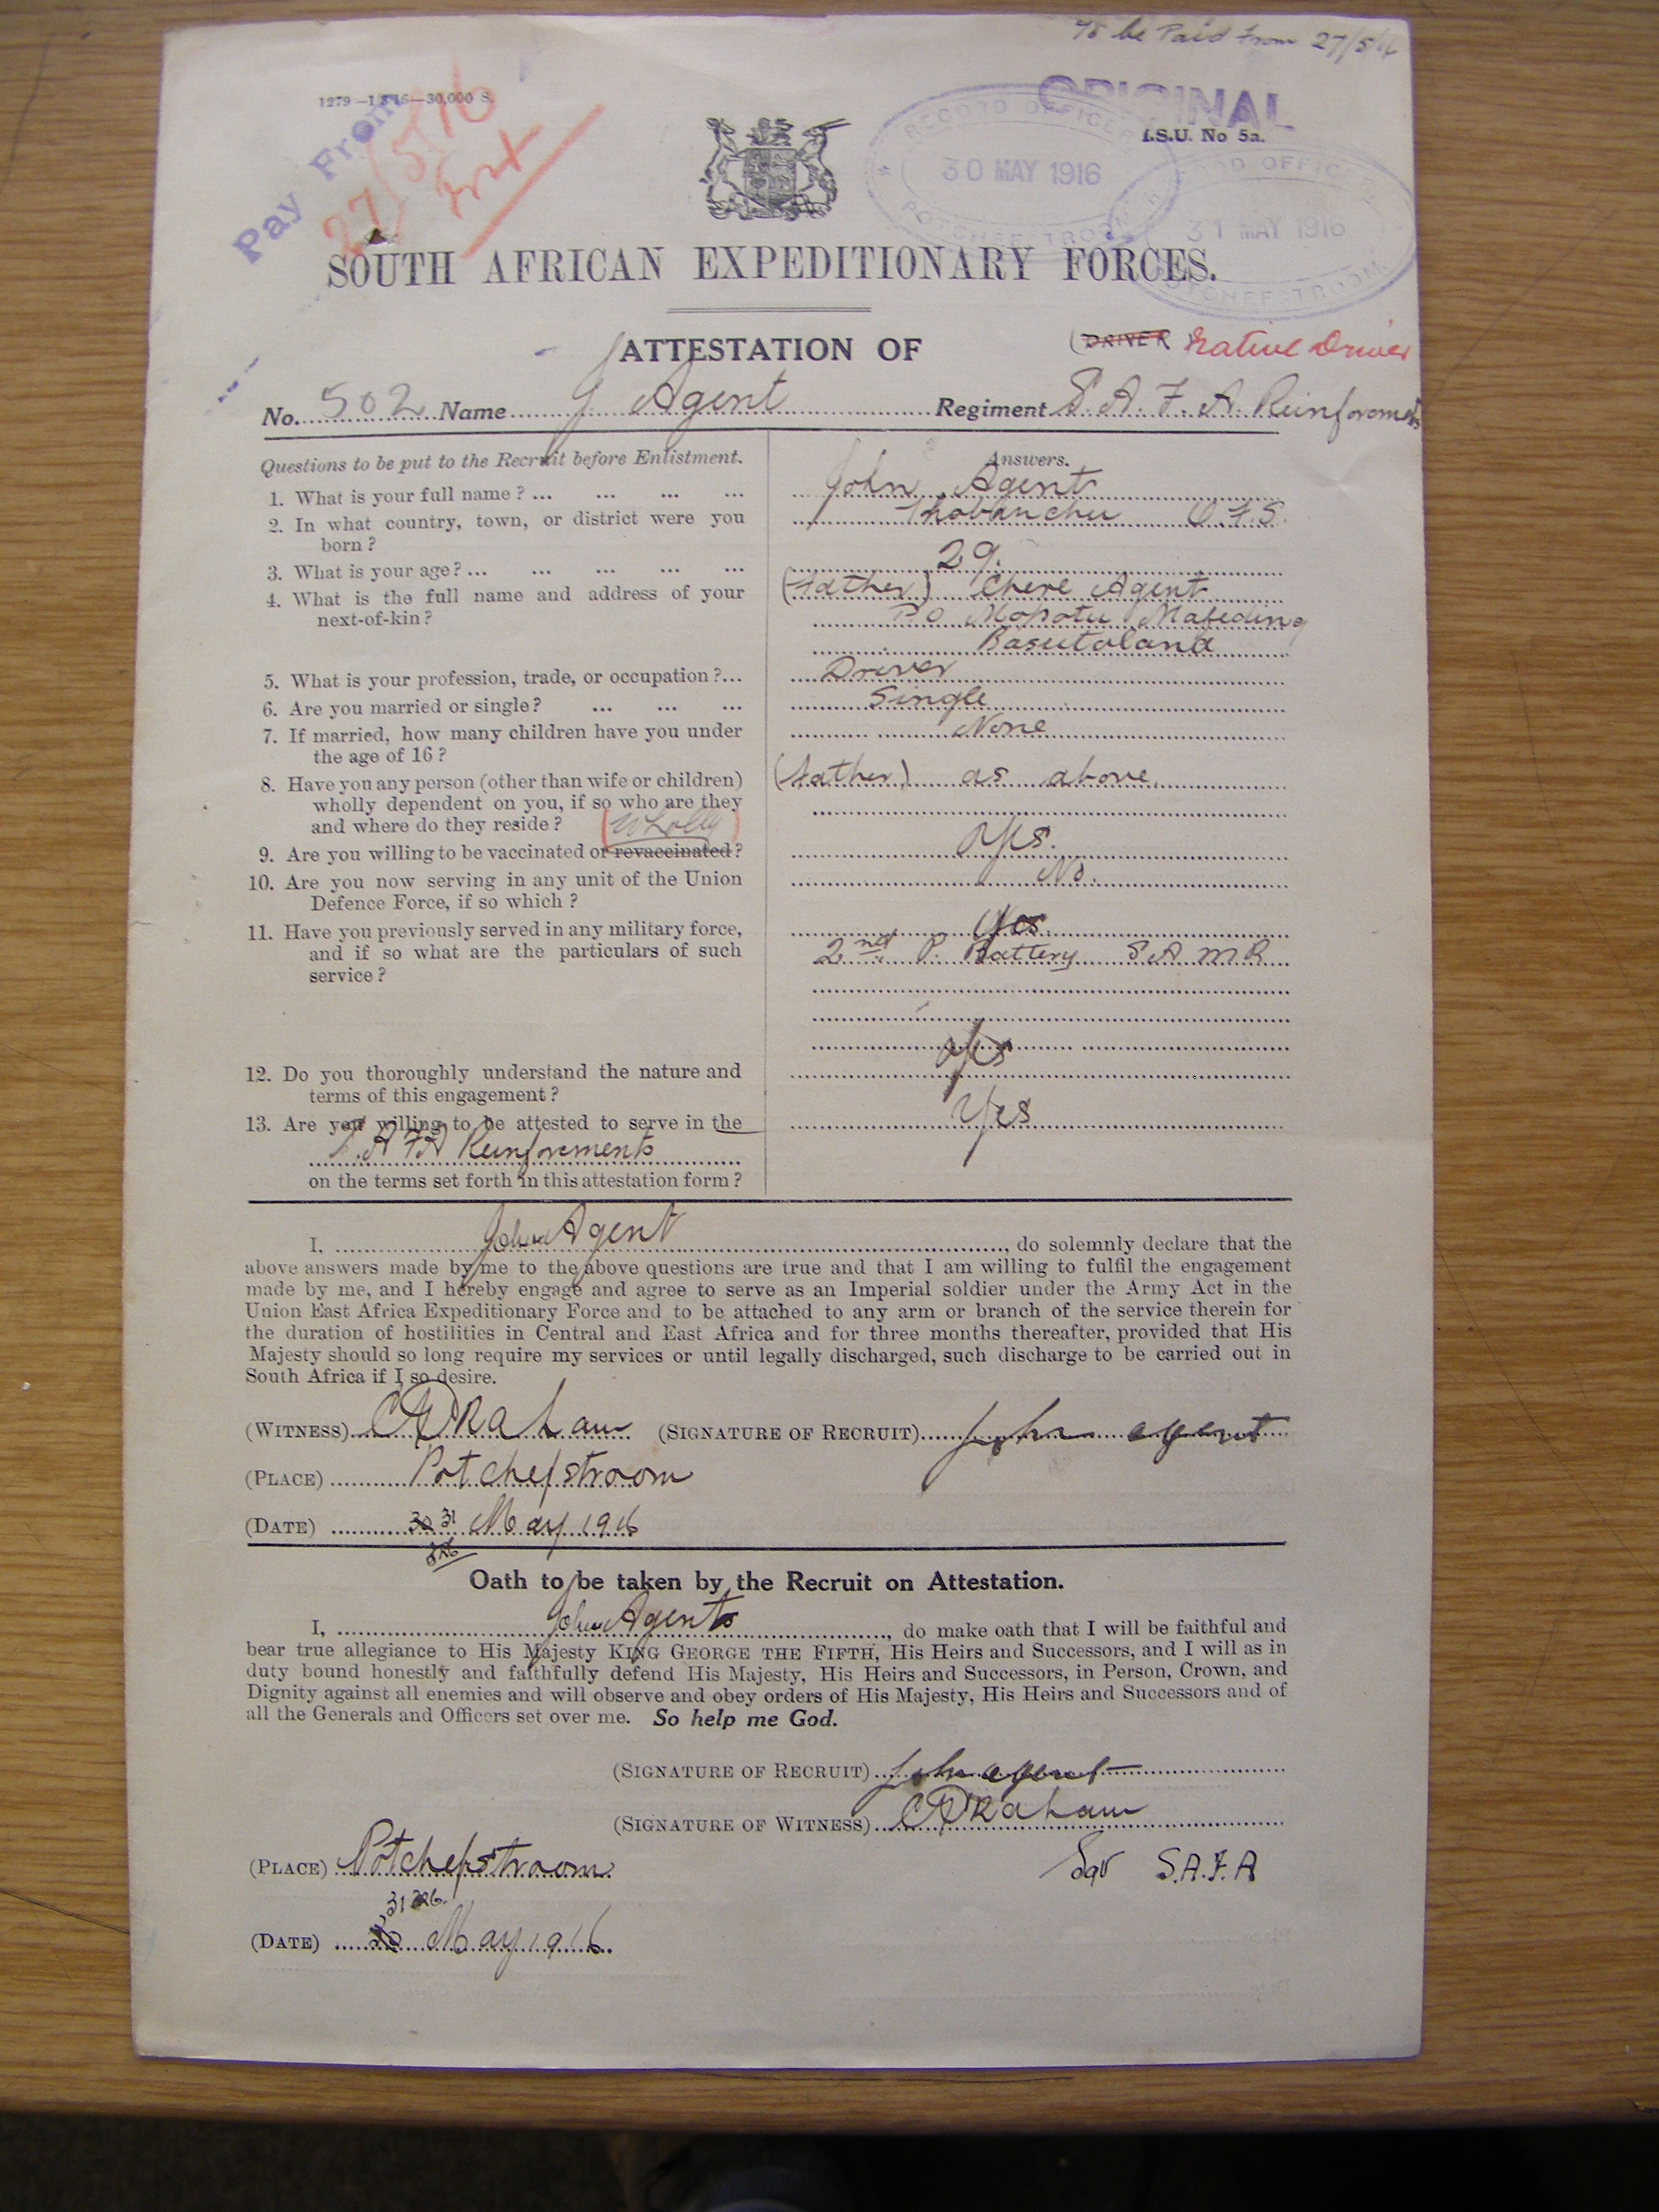 To be Paid from 27/5/16
1279—1/3/16—30,000 S.
ORIGINAL
I.S.U. No 5a.
Pay From
27/5/16
RECORD OFFICER
30 MAY 1916
POTCHEFSTROOM
RECORD OFFICER
31 MAY 1916
POTCHEFSTROOM
SOUTH AFRICAN EXPEDITIONARY FORCES.
ATTESTATION OF
(DRIVER Native Driver
No. 502 Name J Agent Regiment S.A.F.A. Reinforcements
Questions to be put to the Recruit before Enlistment. Answers.
1. What is your full name? ... ... ... ... John Agent
2. In what country, town, or district were you Thobanchu O.F.S.
born?
3. What is your age? ... ... ... ... ... 29.
4. What is the full name and address of your (father) Chere Agent
next-of-kin? P.O. Mokotu Mafeding
Basutoland
5. What is your profession, trade, or occupation?... Driver
6. Are you married or single? ... ... ... Single
7. If married, how many children have you under None
the age of 16?
8. Have you any person (other than wife or children) (father) as above.
wholly dependent on you, if so who are they
and where do they reside? (Wholly)
9. Are you willing to be vaccinated or revaccinated? Yes.
10. Are you now serving in any unit of the Union No.
Defence Force, if so which?
11. Have you previously served in any military force, Yes.
and if so what are the particulars of such 2nd P. Battery S.A.M.R.
service?
12. Do you thoroughly understand the nature and Yes
terms of this engagement?
13. Are you willing to be attested to serve in the Yes
S.A.F.A Reinforcements
on the terms set forth in this attestation form?
I, John Agent, do solemnly declare that the
above answers made by me to the above questions are true and that I am willing to fulfil the engagement
made by me, and I hereby engage and agree to serve as an Imperial soldier under the Army Act in the
Union East Africa Expeditionary Force and to be attached to any arm or branch of the service therein for
the duration of hostilities in Central and East Africa and for three months thereafter, provided that His
Majesty should so long require my services or until legally discharged, such discharge to be carried out in
South Africa if I so desire.
(WITNESS) (SIGNATURE OF RECRUIT) John agent
(PLACE) Potchefstroom
(DATE) 30 31 May 1916
Oath to be taken by the Recruit on Attestation.
I, John Agent, do make oath that I will be faithful and
bear true allegiance to His Majesty KING GEORGE THE FIFTH, His Heirs and Successors, and I will as in
duty bound honestly and faithfully defend His Majesty, His Heirs and Successors, in Person, Crown, and
Dignity against all enemies and will observe and obey orders of His Majesty, His Heirs and Successors and of
all the Generals and Officers set over me. So help me God.
(SIGNATURE OF RECRUIT) John agent
(SIGNATURE OF WITNESS)
(PLACE) Potchefstroom S.A.F.A
31
(DATE) 30 May 1916